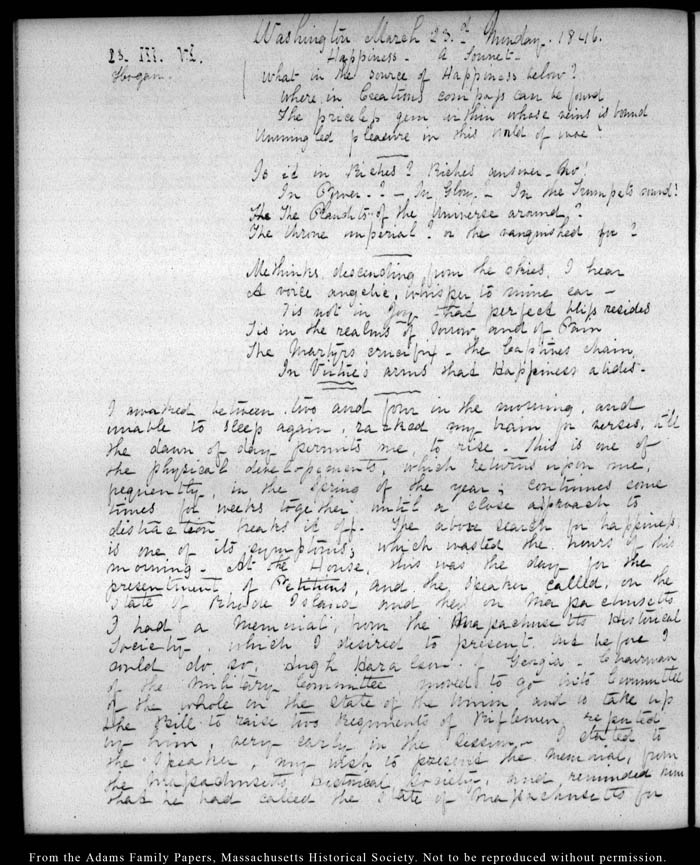 Washington March 23.d Monday. 1846.
23. III. VI.
Hogan.
Happiness - A Sonnet -
What is the source of Happiness below?
Where, in Creation's compass can be found
The priceless gem within whose veins is bound
Unmingled pleasure in this world of woe?
Is it in Riches? Riches answer - No!
In Power? - In Glory? - In the Trumpets sound?
The Plaudits of the Universe around?
The throne imperial? or the vanquished foe?
Methinks, descending from the skies, I hear
A voice angelic, whisper to mine ear -
Tis not in Joy that perfect bliss resides
Tis in the realms of Sorrow and of Pain
The Martyrs crucifix - the Captives chain,
In Virtue's arms that Happiness abides -
I awaked between two and four in the morning, and
unable to sleep again, racked my brain for verses, till
the dawn of day permits me, to rise. This is one of
the physical developements, which returns upon me,
frequently, in the Spring of the year; continues some
times for weeks together, until a close approach to
distraction breaks it off. The above search for happiness
is one of its symptoms, which wasted the hours of this
morning - At the House, this was the day for the
presentment of Petitions, and the Speaker called, on the
State of Rhode Island and then on Massachusetts
I had a Memorial, from the Massachusetts Historical
Society, which I desired to present, but before I
could do so, Hugh Haralson of Georgia - Chairman
of the Military Committee moved to go into Committee
of the whole on the state of the Union, and to take up
the Bill to raise two Regiments of Riflemen, reported
by him, very early in the session - I stated to
the Speaker, my wish to present the memorial, from
the Massachusetts Historical Society, and reminded him
that he had called the State of Massachusetts for
From the Adams Family Papers, Massachusetts Historical Society. Not to be reproduced without permission.